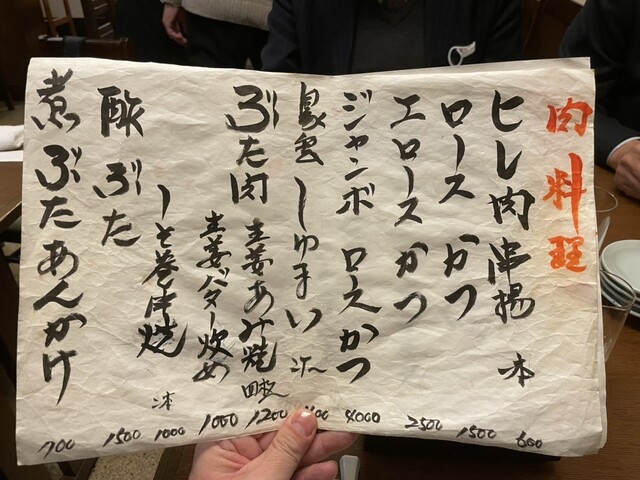 肉料理
ヒレ肉串揚 一本 600
ロースかつ 1500
エロースかつ 2500
ジャンボロースかつ 4000
しゅうまい
ぶた肉 生姜あみ焼 四枚 1200
生姜バター炒め 1000
しそ巻き串焼 二本 1000
酢ぶた 1500
煮ぶたあんかけ 700